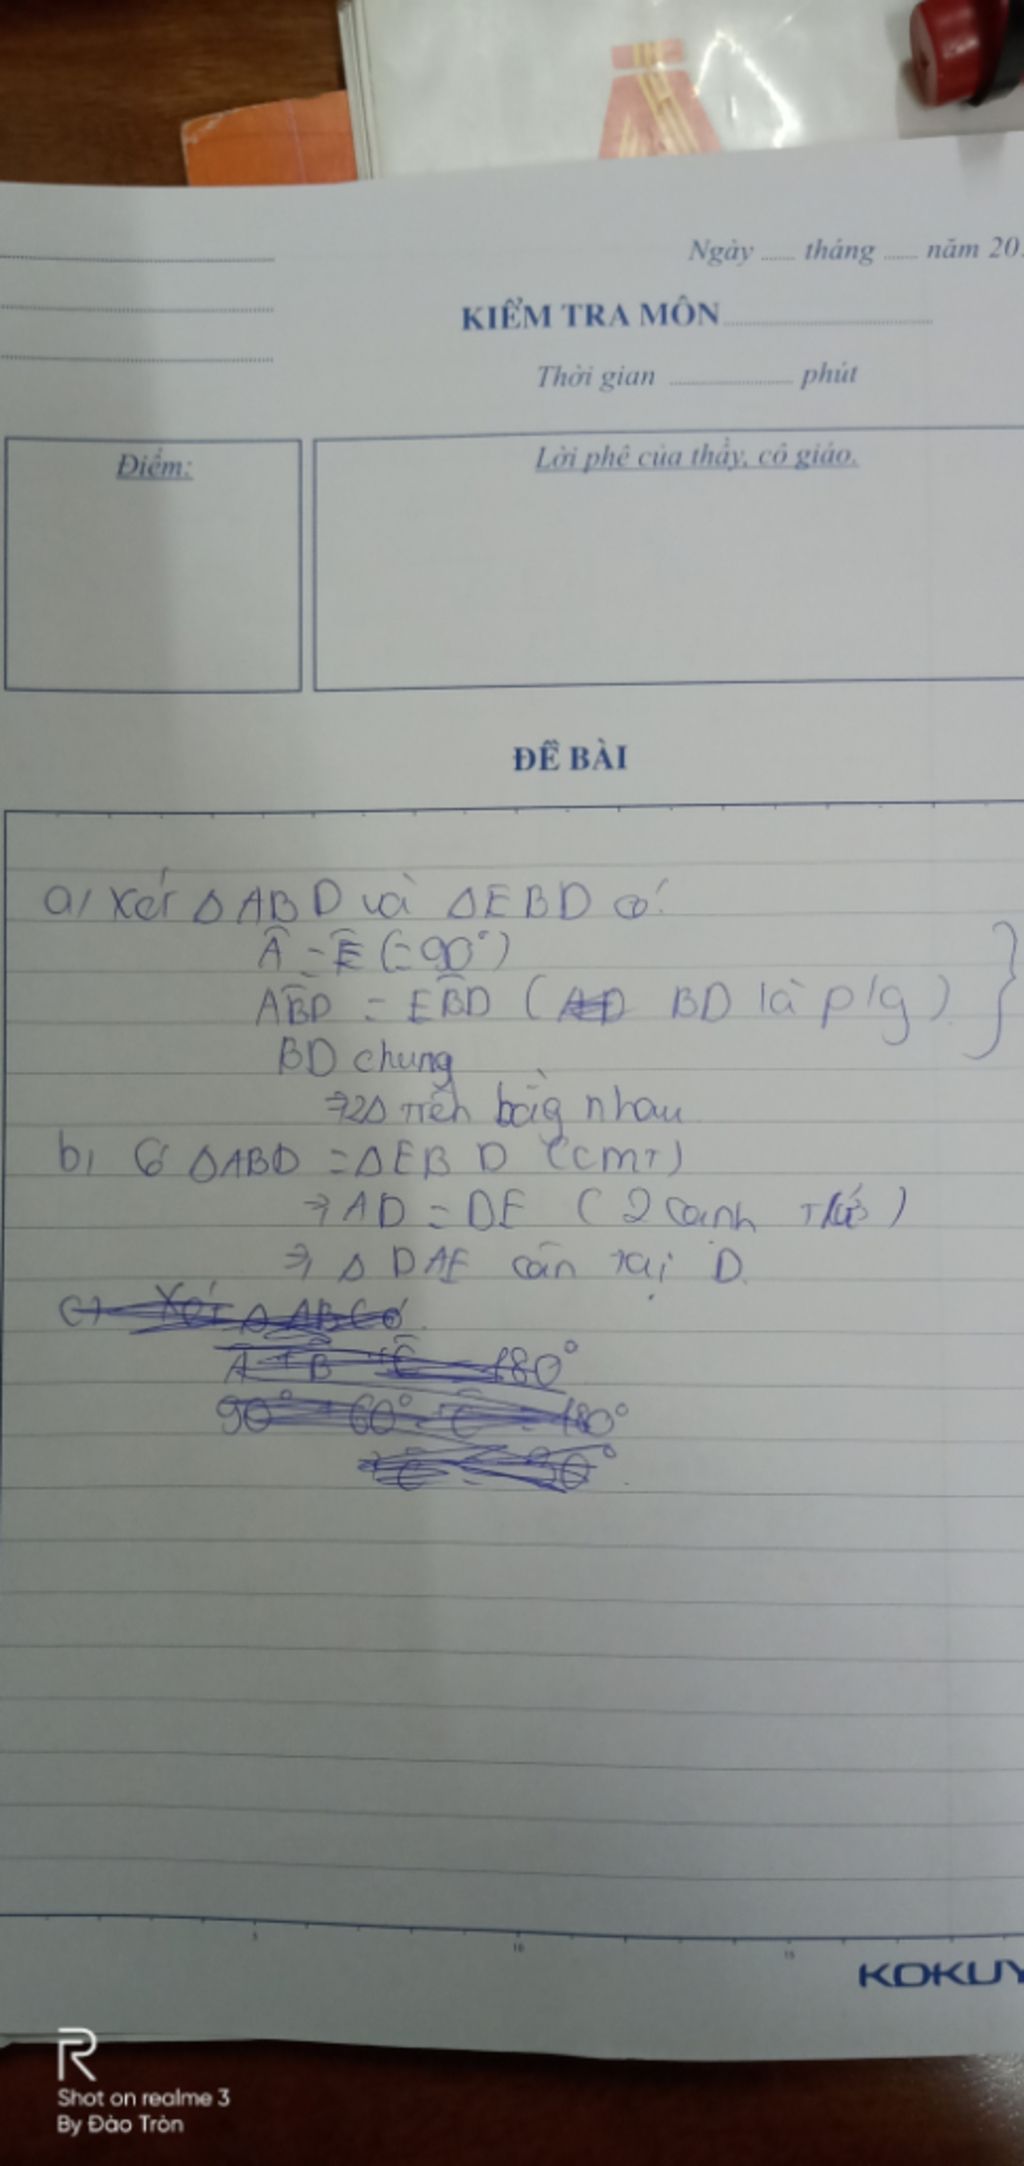 Ngày ..... tháng ..... năm 20
KIỂM TRA MÔN
Thời gian ............ phút
Điểm:
Lời phê của thầy, cô giáo.
ĐỀ BÀI
a/ Xét △ABD và △EBD có:
Â = Ê (= 90°)
AB̂D = EB̂D (AD BD là p/g)
BD chung
⇒ 2△ trên bằg nhau
b/ Có △ABD = △EBD (cmt)
⇒ AD = DE (2 cạnh tứ)
⇒ △DAE cân tại D.
c) Xét △ABC có
Â + B̂ + Ĉ = 180°
90° + 60° + Ĉ = 180°
Ĉ = 30°
5 10 15
KOKUY
R
Shot on realme 3
By Đào Tròn